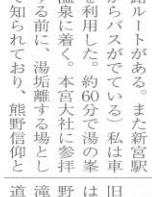 路ルートがある。また新宮駅
からバスがでている）私は車
を利用した。約60分で湯の峯
温泉に着く。本宮大社に参拝
する前に、湯垢離する場とし
て知られており、熊野信仰と
旧
は
野
滝
道